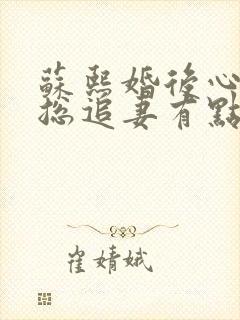 蘇熙婚後心
總追妻有點
崔婧娥